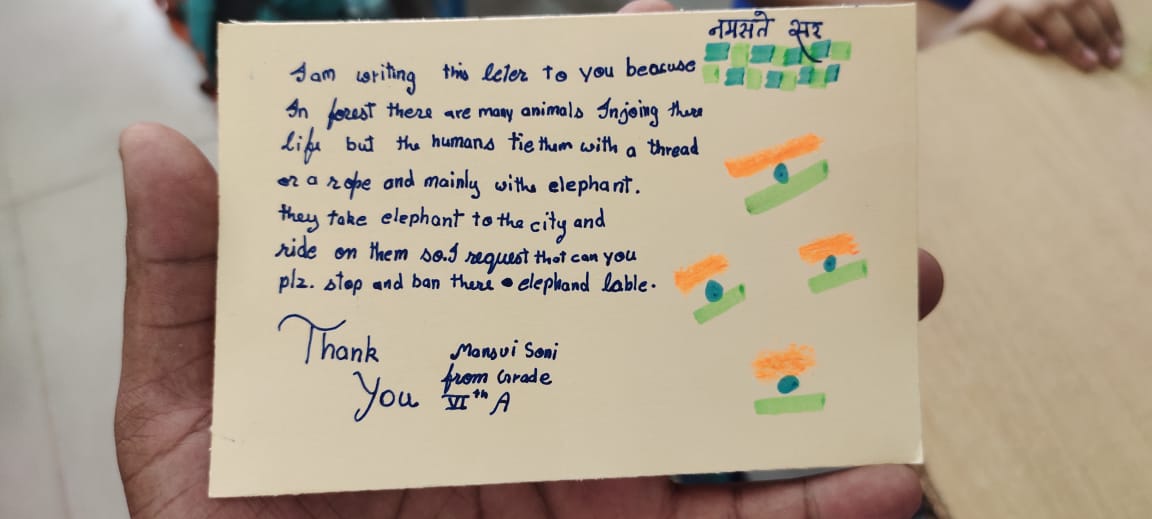 नमसते सर
I am writing this leter to you beacuse
In forest there are many animals Injoing there
life but the humans tie them with a thread
or a rope and mainly withe elephant.
they take elephant to the city and
ride on them so.I request that can you
plz. stop and ban there elephand lable.
Thank
You
Mansvi Soni
from Grade
VIth A